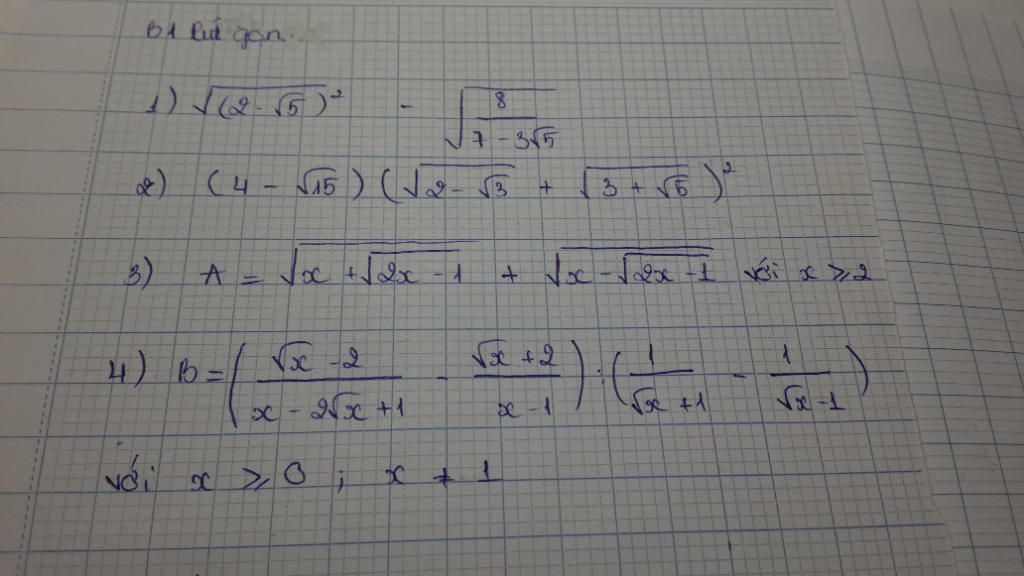 B1 Rút gọn.
1) √(2 - √5)² - √(8/(7 - 3√5))
2) (4 - √15) (√(2 - √3) + √(3 + √5))²
3) A = √(x + √(2x - 1)) + √(x - √(2x - 1)) với x ⩾ 2
4) B = ((√x - 2)/(x - 2√x + 1) - (√x + 2)/(x - 1)) : (1/(√x + 1) - 1/(√x - 1))
với x ⩾ 0 ; x ≠ 1